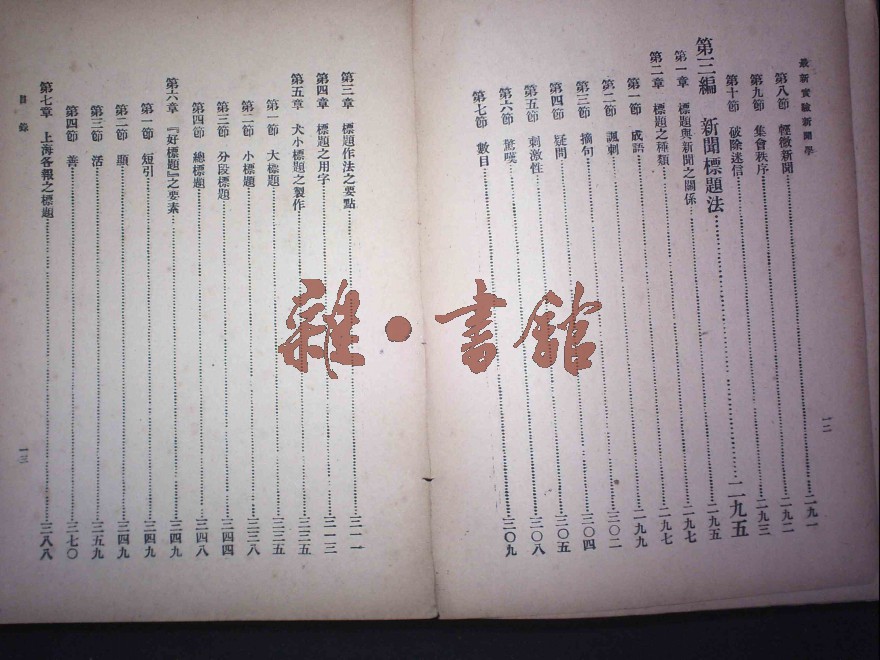 最新實驗新聞學
第八節 輕微新聞 二九一
第九節 集會秩序 二九二
第十節 破除迷信 二九三
第三編 新聞標題法 二九五
第一章 標題與新聞之關係 二九五
第二章 標題之種類 二九七
第一節 成語 二九九
第二節 諷刺 三〇二
第三節 摘句 三〇四
第四節 疑問 三〇五
第五節 刺激性 三〇八
第六節 驚嘆 三〇九
第七節 數目
一二
第三章 標題作法之要點 三一一
第四章 標題之用字 三一三
第五章 大小標題之製作 三三五
第一節 大標題 三三五
第二節 小標題 三三八
第三節 分段標題 三四四
第四節 總標題 三四八
第六章 『好標題』之要素 三四九
第一節 短引 三四九
第二節 顯 三四九
第三節 活 三五九
第四節 善 三七〇
第七章 上海各報之標題 三八八
目錄
一三
雜·書館